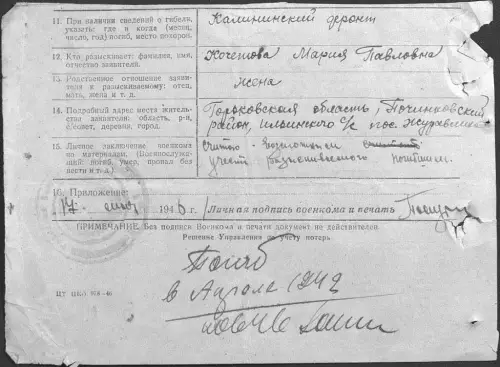 11. При наличии сведений о гибели, указать: где и когда (месяц, число, год) погиб, место похорон.
Калининский фронт
12. Кто разыскивает: фамилия, имя, отчество заявителя.
Кочеткова Мария Павловна
13. Родственное отношение заявителя к разыскиваемому: отец, мать, жена и т. д.
жена
14. Подробный адрес места жительства заявителя: область, р-н, с/совет, деревня, город.
Горьковская область, Починковский
район, Ильинского с/с пос. Журавлиха
15. Личное заключение военкома по материалам. (Военнослужащий: погиб, умер, пропал без вести и т. д.)
считаю возможным
учесть разыскиваемого погибшим.
16. Приложение:
17 1946 г. Личная подпись военкома и печать
ПРИМЕЧАНИЕ: Без подписи Военкома и печати документ не действителен
Решение Управления по учету потерь
Погиб
в Апреле 1942